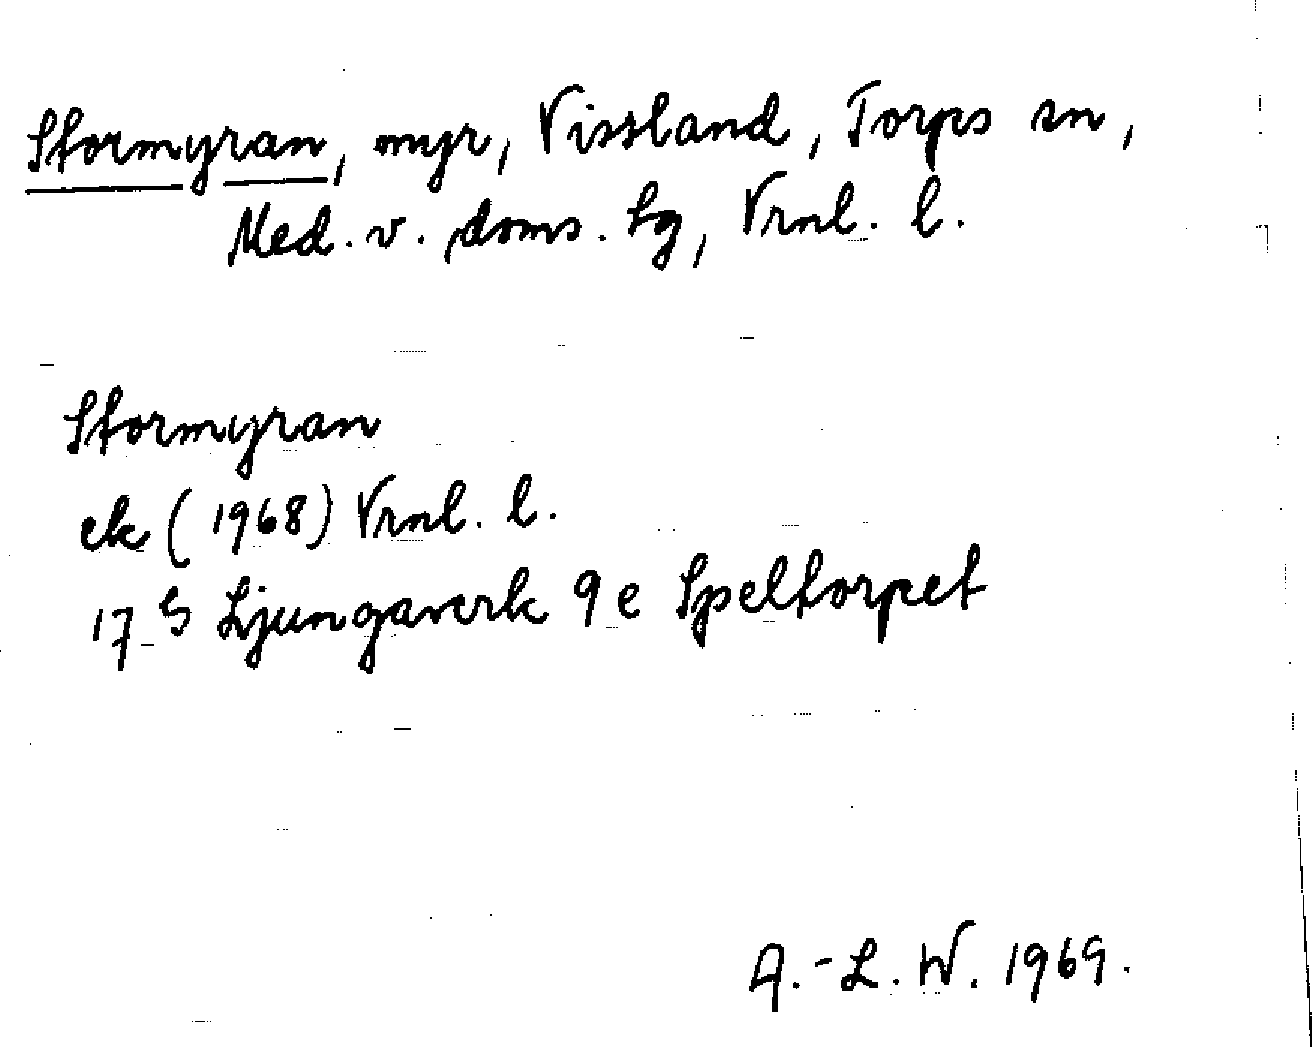 Stormyran, myr, Vissland, Torps sn,
Med. v. doms. hg, Vrnl. l.
Stormyran
ek (1968) Vrnl. l.
17 G Ljungaverk 9 e Speltorpet
A.-L. W. 1969.